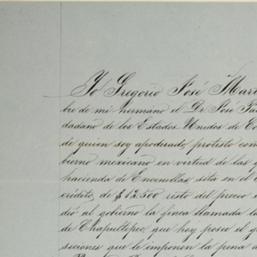 Yo Gregorio José Mar
bre de mi hermano el Dr José
dadano de los Estados Unidos de Co
de quien soy apoderado, protesto con
bierno mexicano en virtud de las
hacienda de Encinillas, sita en el
crédito, de $62.500 resto del precio
dió al gobierno la finca llamada
de Chapultepec, que hoy posee el g
siciones que le imponen la pena